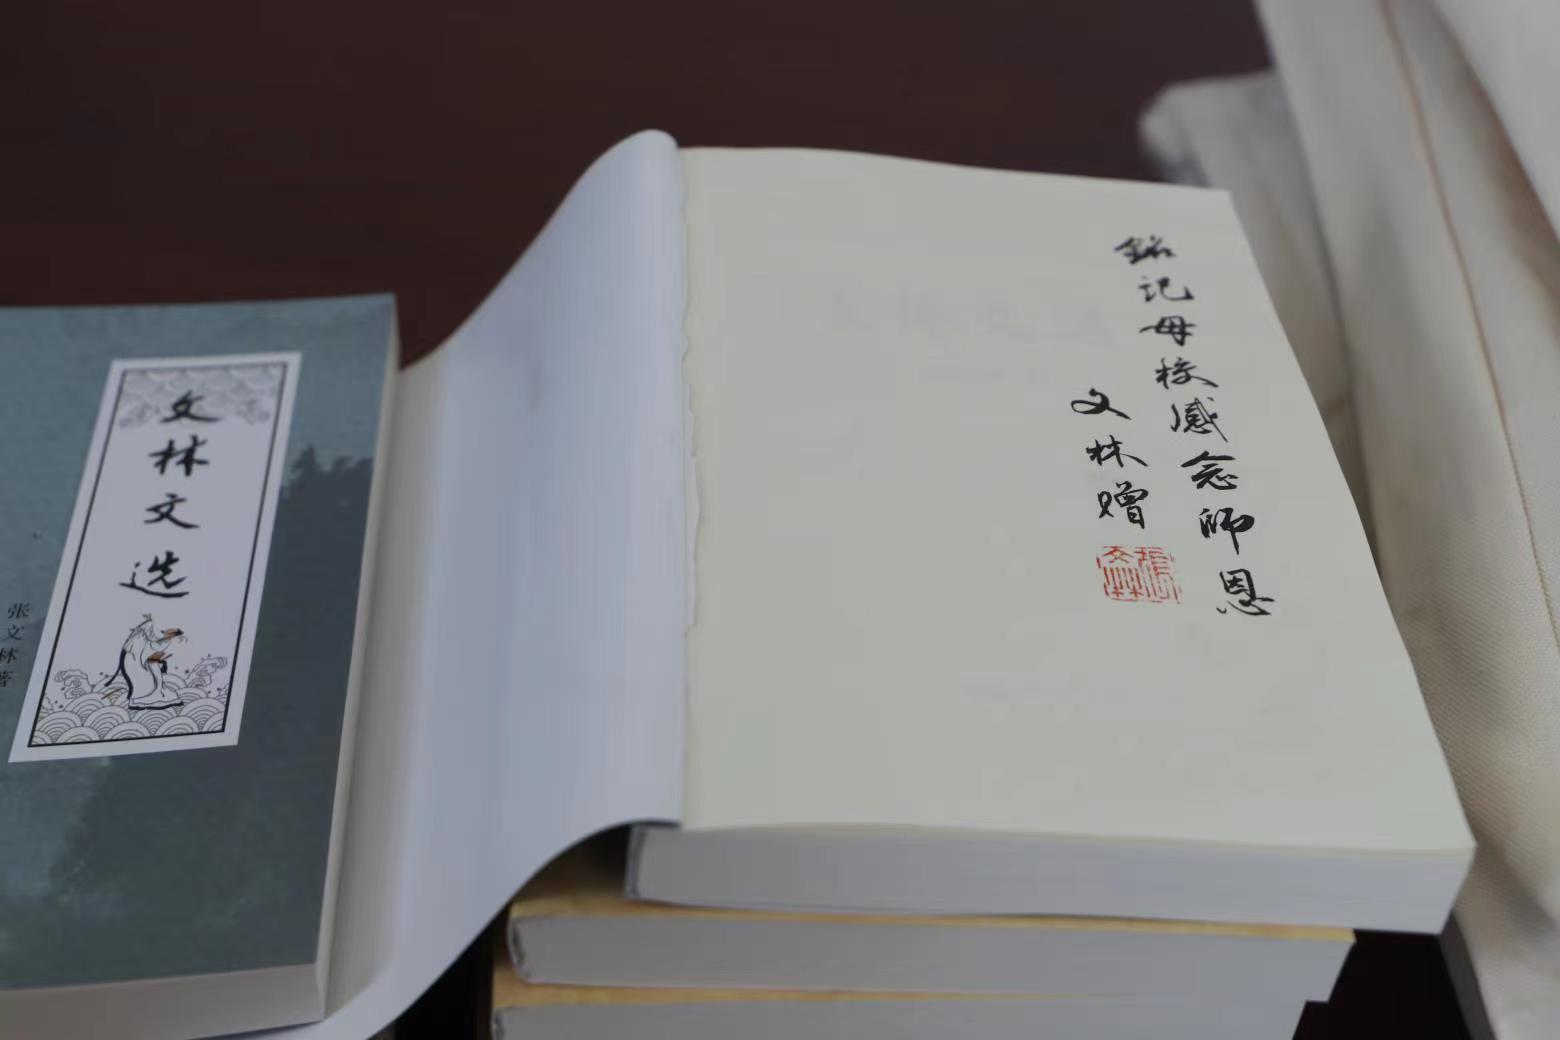 文林文选
张文林著
銘记母校感念师恩
文林赠
張文林